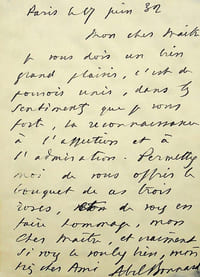 Paris le 17 juin 32
Mon cher Maître
je vous dois un bien
grand plaisir, c'est de
pouvoir unir, dans les
sentiments que je vous
porte, la reconnaissance
à l'affection et à
l'admiration. Permettez
moi de vous offrir le
bouquet de ces trois
roses, de vous en
faire hommage, mon
cher Maître, et vraiment
si vous le voulez bien, mon
très cher Ami Abel Bonnard